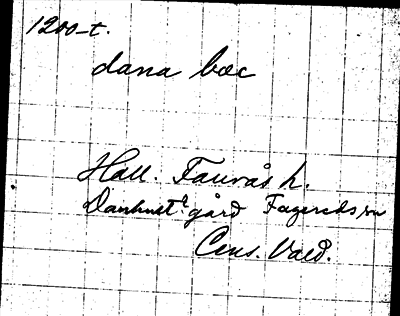 1200-t.
dana bæc
Hall. Faurås h.
gård Fagereds sn
Cens. Vald.